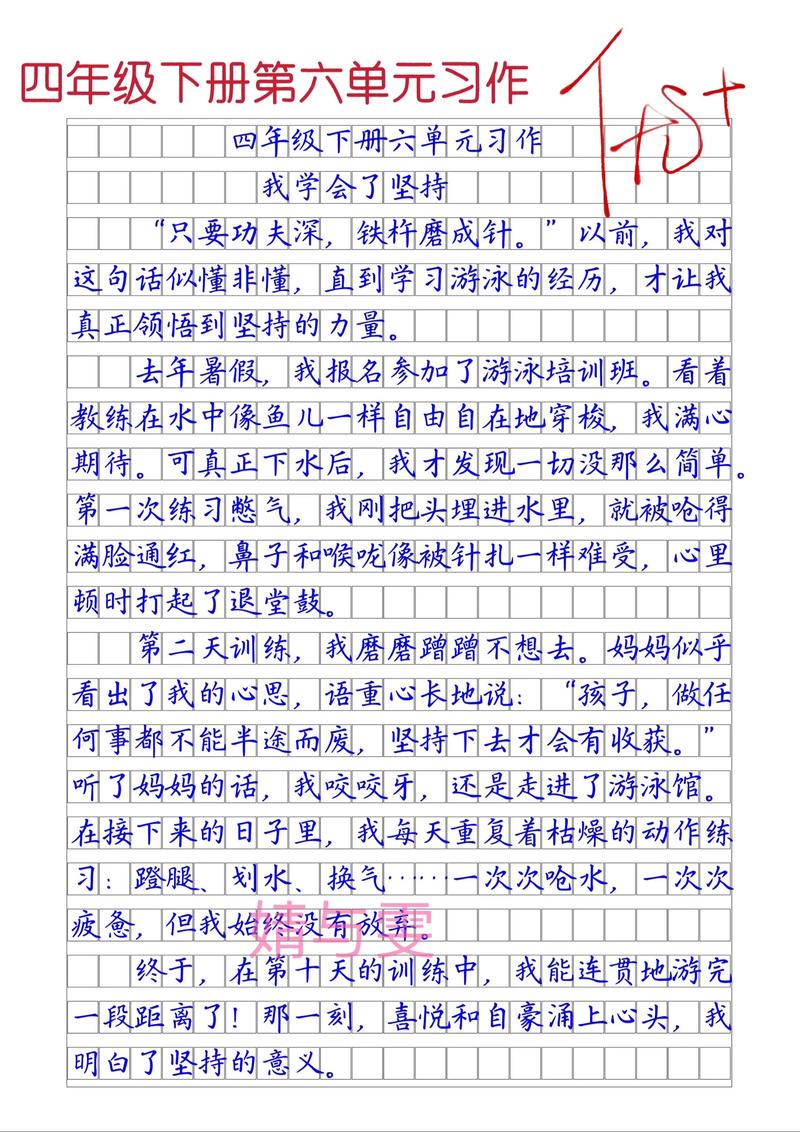 四年级下册第六单元习作
优+
四年级下册六单元习作
我学会了坚持
“只要功夫深，铁杵磨成针。”以前，我对
这句话似懂非懂，直到学习游泳的经历，才让我
真正领悟到坚持的力量。
去年暑假，我报名参加了游泳培训班。看着
教练在水中像鱼儿一样自由自在地穿梭，我满心
期待。可真正下水后，我才发现一切没那么简单。
第一次练习憋气，我刚把头埋进水里，就被呛得
满脸通红，鼻子和喉咙像被针扎一样难受，心里
顿时打起了退堂鼓。
第二天训练，我磨磨蹭蹭不想去。妈妈似乎
看出了我的心思，语重心长地说：“孩子，做任
何事都不能半途而废，坚持下去才会有收获。”
听了妈妈的话，我咬咬牙，还是走进了游泳馆。
在接下来的日子里，我每天重复着枯燥的动作练
习：蹬腿、划水、换气……一次次呛水，一次次
疲惫，但我始终没有放弃。
婧与雯
终于，在第十天的训练中，我能连贯地游完
一段距离了！那一刻，喜悦和自豪涌上心头，我
明白了坚持的意义。